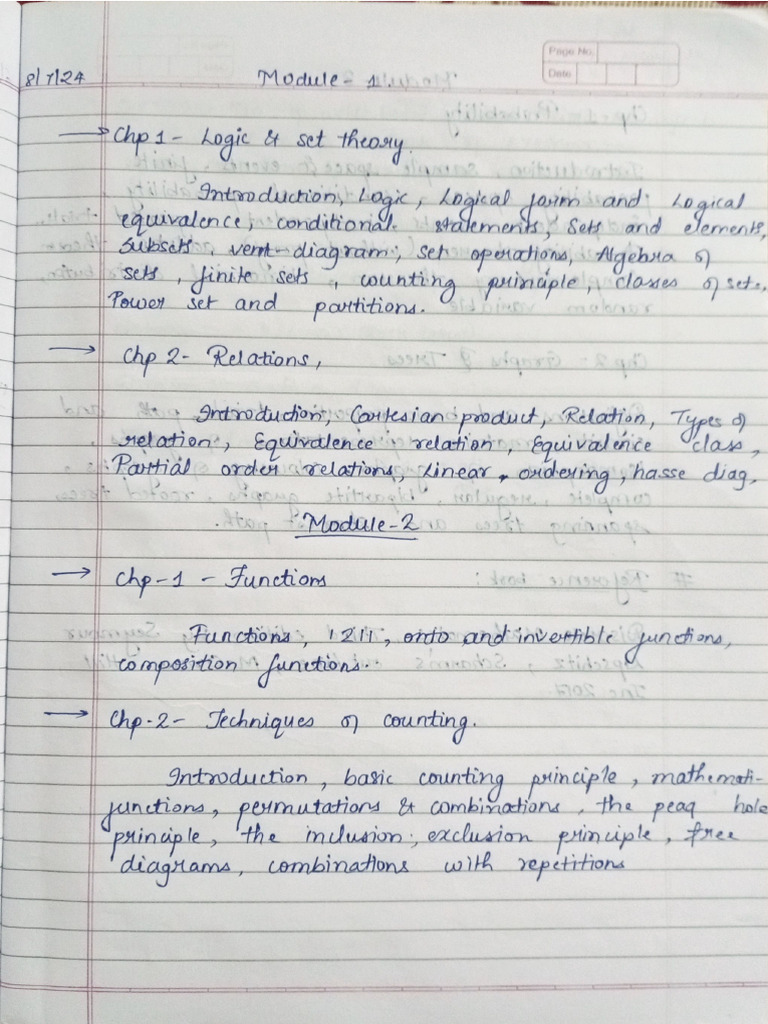 Page No.
Date
8/7/24 Module - 1.
→ Chp 1 - Logic & set theory.
Introduction, Logic, Logical form and Logical
equivalence, conditional statements, Sets and elements,
Subsets, vent-diagram, set operations, Algebra of
sets, finite sets, counting principle, classes of sets,
Power set and partitions.
→ Chp 2 - Relations,
Introduction, Cartesian product, Relation, Types of
relation, Equivalence relation, Equivalence class,
Partial order relations, Linear ordering, hasse diag,
Module-2
→ Chp-1 - Functions
Functions, 1211, onto and invertible functions,
composition functions.
→ Chp-2 - Techniques of counting.
Introduction, basic counting principle, mathemati-
functions, permutations & combinations, the peaq hole
principle, the inclusion, exclusion principle, free
diagrams, combinations with repetitions